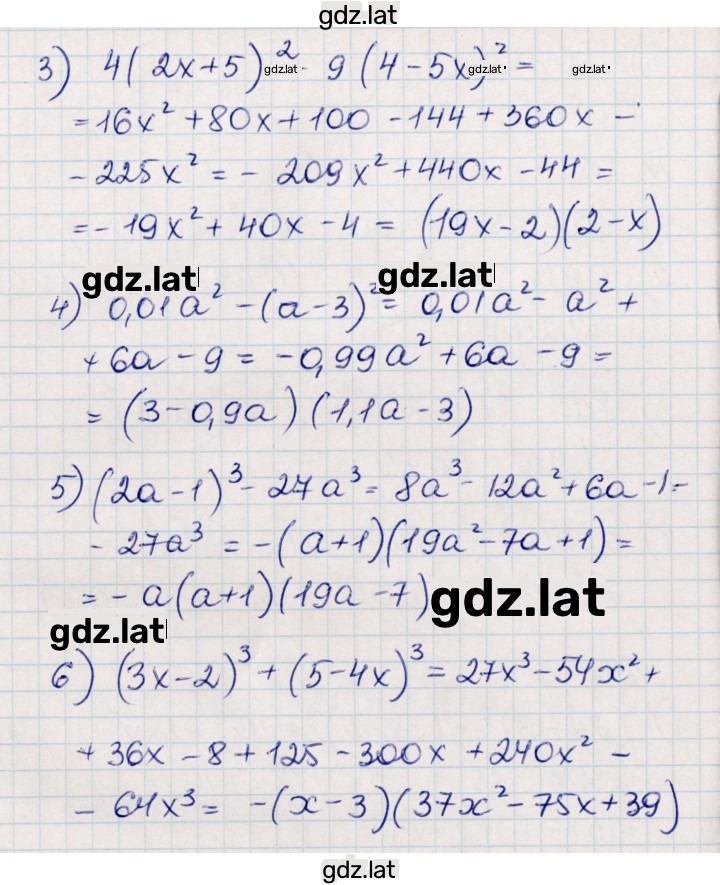 gdz.lat
3) 4(2x+5)² gdz.lat - 9(4-5x)² gdz.lat = gdz.lat
=16x²+80x+100-144+360x-
-225x²=-209x²+440x-44=
=-19x²+40x-4=(19x-2)(2-x)
gdz.lat gdz.lat
4) 0,01a²-(a-3)²=0,01a²-a²+
+6a-9=-0,99a²+6a-9=
=(3-0,9a)(1,1a-3)
5) (2a-1)³-27a³=8a³-12a²+6a-1-
-27a³=-(a+1)(19a²-7a+1)=
=-a(a+1)(19a-7) gdz.lat
gdz.lat
6) (3x-2)³+(5-4x)³=27x³-54x²+
+36x-8+125-300x+240x²-
-64x³=-(x-3)(37x²-75x+39)
gdz.lat